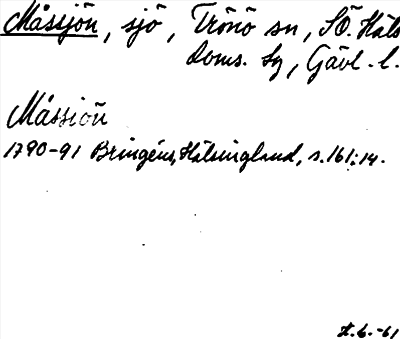 Måssjön, sjö, Trönö sn, SÖ. Häls
Doms. Sg, Gävl. l.
Måssiön
1790-91 Bringéus, Hälsingland, s. 161:14.